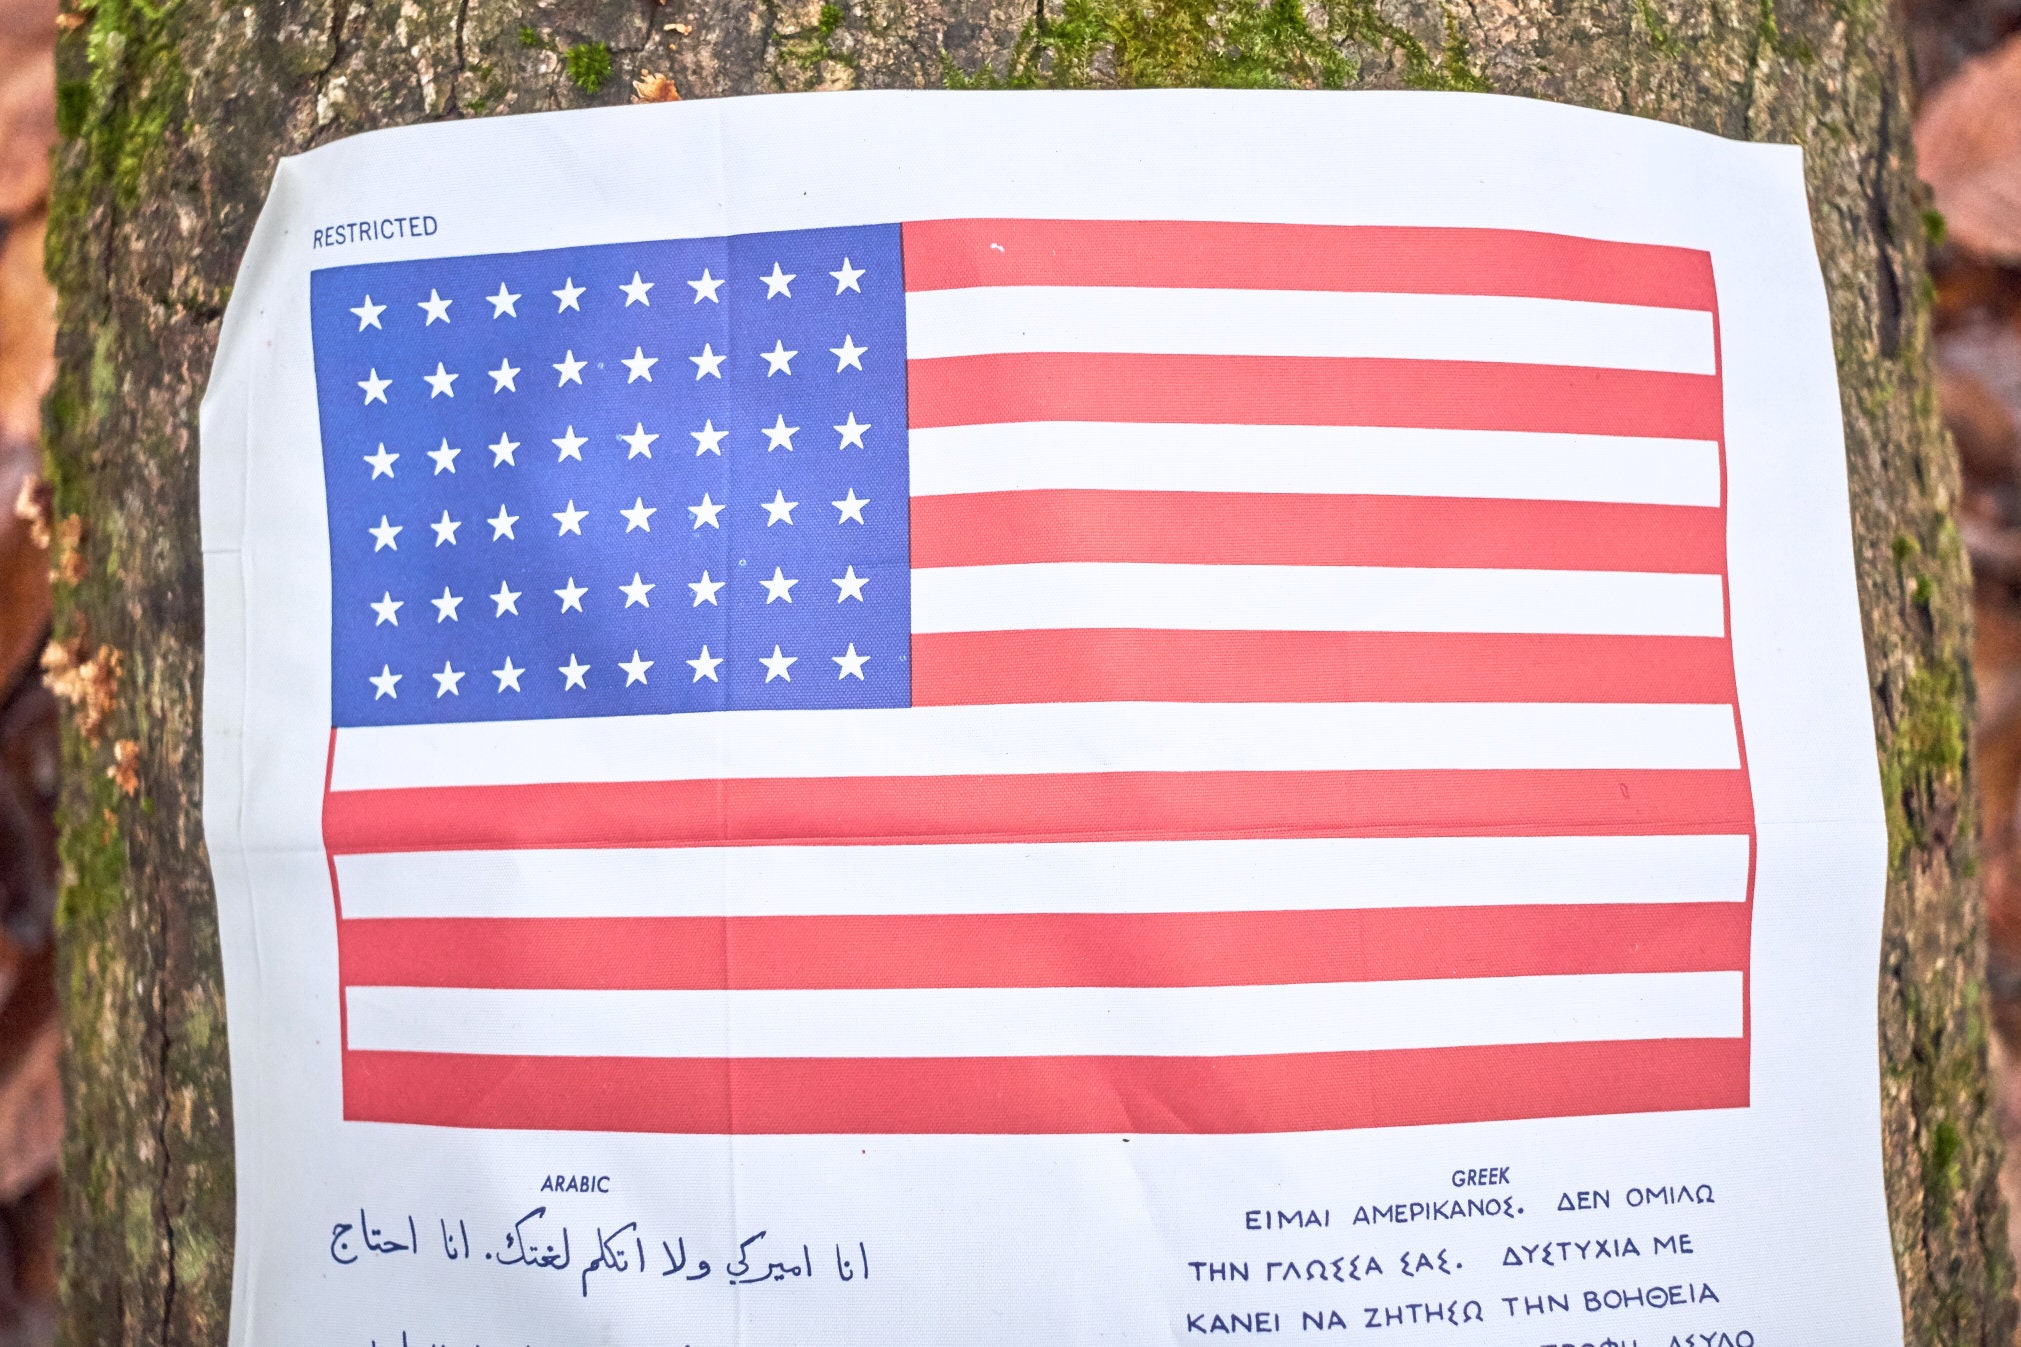 RESTRICTED
ARABIC
انا اميركي ولا اتكلم لغتك. انا احتاج
GREEK
ΕΙΜΑΙ ΑΜΕΡΙΚΑΝΟΣ. ΔΕΝ ΟΜΙΛΩ
ΤΗΝ ΓΛΩΣΣΑ ΣΑΣ. ΔΥΣΤΥΧΙΑ ΜΕ
ΚΑΝΕΙ ΝΑ ΖΗΤΗΣΩ ΤΗΝ ΒΟΗΘΕΙΑ
ΤΡΟΦΗ ΑΣΥΛΟ